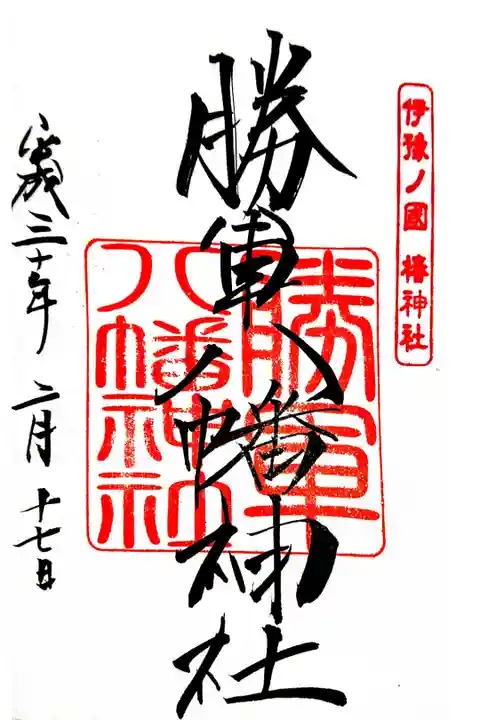 伊豫ノ國 椿神社
勝軍八幡神社
勝軍
八幡神社
三十年 二月 十七日